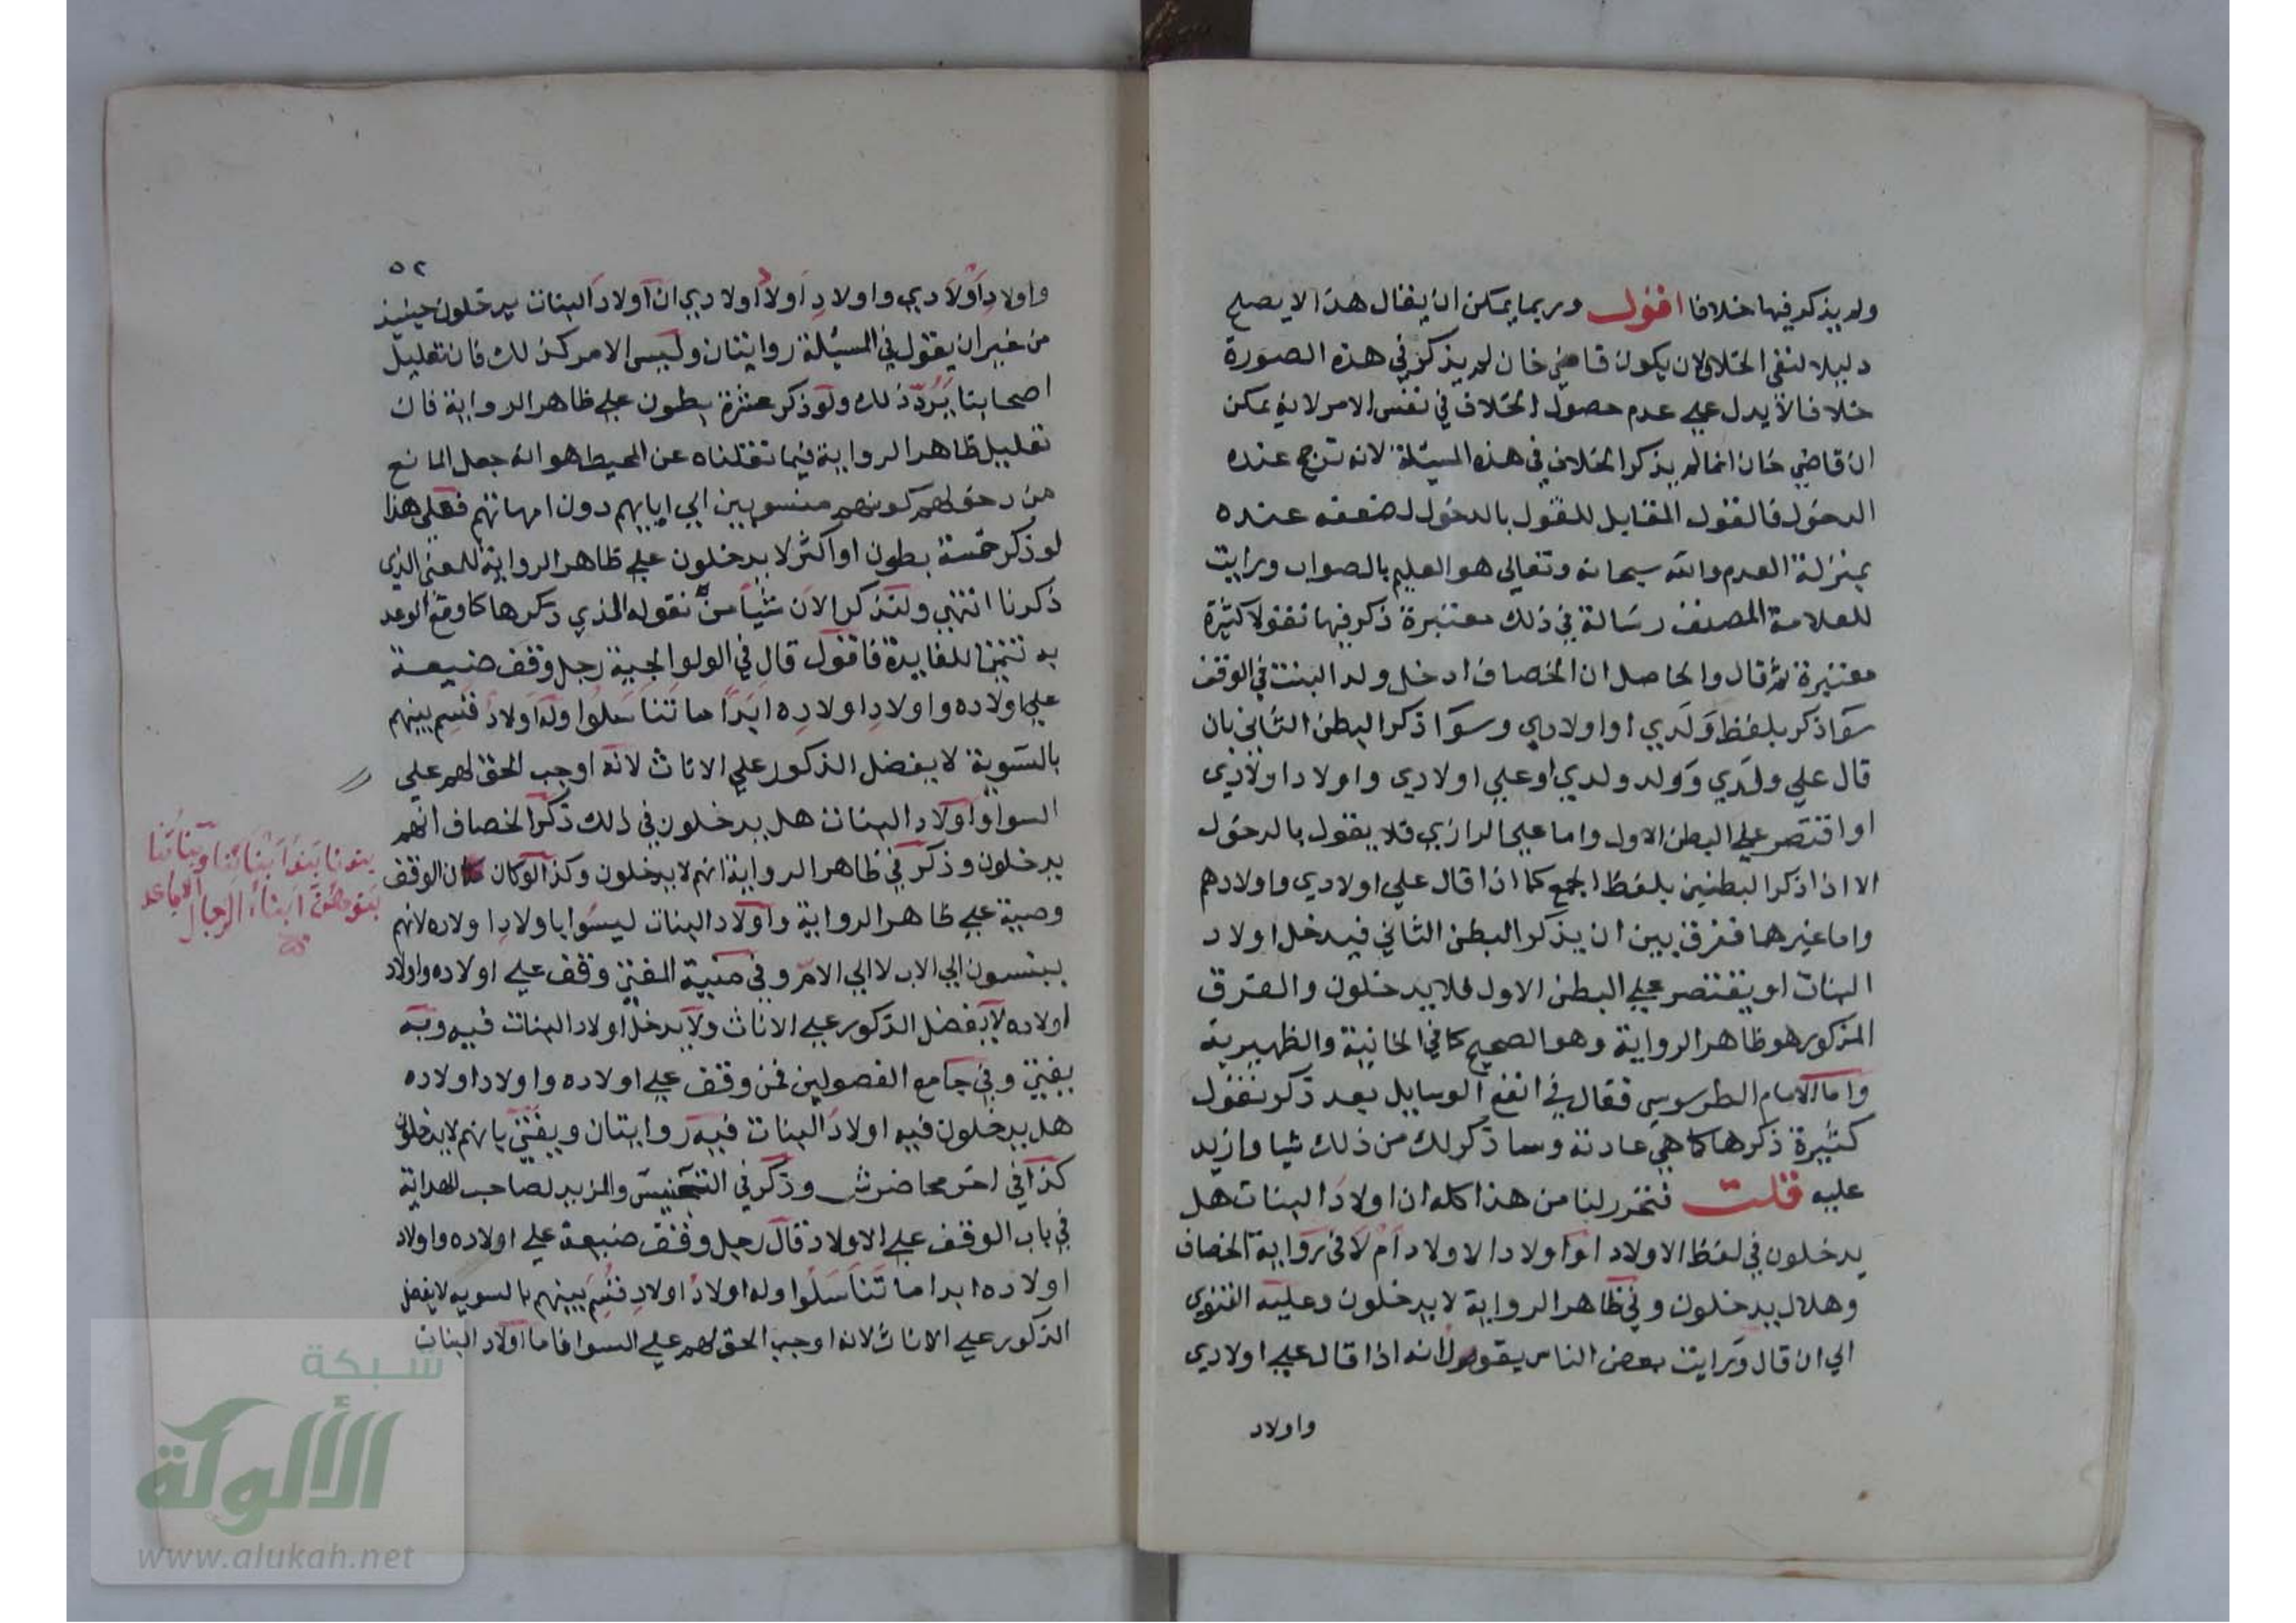 ولم يذكر فيها خلافا اقول وربما يمكن ان يقال هذا لا يصلح
دليلا لنفي الخلاف لان يكون قاضي خان لم يذكر في هذه الصورة
خلافا لا يدل علي عدم حصول الخلاف في نفس الامر لانه يمكن
ان قاضي خان انما لم يذكر الخلاف في هذه المسئلة لانه ترجح عنده
الدخول فالقول المقابل للقول بالدخول لضعفه عنده
بمنزلة العدم والله سبحانه وتعالي هو العليم بالصواب ورايت
للعلامة المصنف رسالة في ذلك معتبرة ذكر فيها نقولا كثيرة
معتبرة ثم قال والحاصل ان الخصاف ادخل ولد البنت في الوقف
سوا ذكر بلفظ ولدي او اولادي وسوا ذكر البطن الثاني بان
قال علي ولدي وولد ولدي او علي اولادي واولاد اولادي
او اقتصر علي البطن الاول واما علي الرازي فلا يقول بالدخول
الا اذا ذكر البطنين بلفظ الجمع كما اذا قال علي اولادي واولادهم
واما غيرها ففرق بين ان يذكر البطن الثاني فيدخل اولاد
البنات او يقتصر علي البطن الاول فلا يدخلون والفرق
المذكور هو ظاهر الرواية وهو الصحيح كما في الخانية والظهيرية
واما الامام الطرسوسي فقال في انفع الوسايل بعد ذكر نقول
كثيرة ذكرها كما هي عادته وساذكر لك من ذلك شيا وازيد
عليه قلت فتحرر لنا من هذا كله ان اولاد البنات هل
يدخلون في لفظ الاولاد او اولاد الاولاد ام لا في رواية الخصاف
وهلال يدخلون وفي ظاهر الرواية لا يدخلون وعليه الفتوي
الي ان قال ورايت بعض الناس يقولون انه اذا قال علي اولادي
واولاد
٥٢
واولاد اولادي واولاد اولاد اولادي ان اولاد البنات يدخلون حينيذ
من غير ان يقول في المسيلة روايتان وليس الامر كذلك فان تعليل
اصحابنا يردّ ذلك ولو ذكر عشرة بطون علي ظاهر الرواية فان
تعليل ظاهر الرواية فيما نقلناه عن المحيط هو انه جعل المانع
من دخولهم كونهم منسوبين الي ابايهم دون امهاتهم فعلي هذا
لو ذكر خمسة بطون او اكثر لا يدخلون علي ظاهر الرواية للمعني الذي
ذكرنا انتهي ولنذكر الان شيأ من نقوله الذي ذكرها كما وقع الوعد
به تتميما للفايدة فاقول قال في الولوالجية رجل وقف ضيعة
علي اولاده واولاد اولاده ابدًا ما تناسلوا وله اولاد قسم بينهم
بالسوية لا يفضل الذكور علي الاناث لانه اوجب الحق لهم علي
السوا واولاد البنات هل يدخلون في ذلك ذكر الخصاف انهم
يدخلون وذكر في ظاهر الرواية انهم لا يدخلون وكذا لو كان مكان الوقف
وصية علي ظاهر الرواية واولاد البنات ليسوا باولاد اولاده لانهم
ينسبون الي الاب لا الي الام وفي منية المفتي وقف علي اولاده واولاد
اولاده لا يفضل الذكور علي الاناث ولا يدخل اولاد البنات فيه وبه
يفتي وفي جامع الفصولين فمن وقف علي اولاده واولاد اولاده
هل يدخلون فيه اولاد البنات فيه روايتان ويفتي بانهم لا يدخلون
كذا في اخر محاضرش وذكر في التجنيس والمزيد لصاحب الهداية
في باب الوقف علي الاولاد قال رجل وقف ضيعة علي اولاده واولاد
اولاده ابدا ما تناسلوا وله اولاد اولاد قسم بينهم بالسويه لا يفضل
الذكور علي الاناث لانه اوجب الحق لهم علي السوا فاما اولاد البنات
بنونا بنوا ابنائنا وبناتنا
بنوهن ابناء الرجال الاباعد
شبكة
الألوكة
www.alukah.net